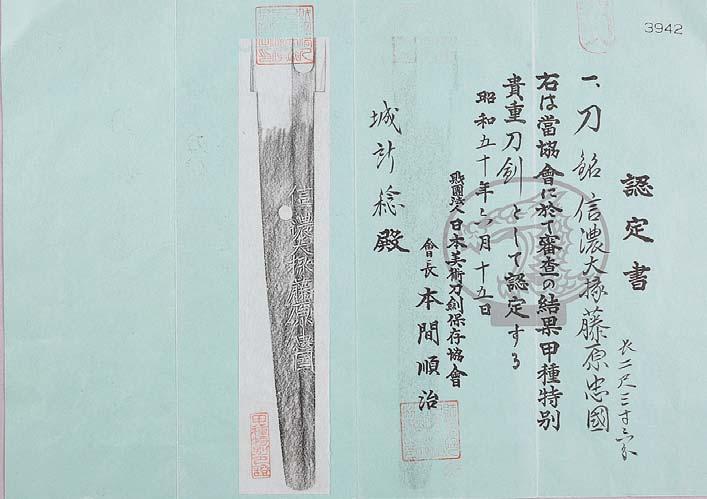 3942
認定書
一、刀 銘 信濃大掾藤原忠國
長二尺三寸六分
右は當協會に於て審査の結果甲種特別
貴重刀剣として認定する
昭和五十年六月十五日
財團法人 日本美術刀剣保存協會
會長 本間順治
殿
信濃大掾藤原忠國